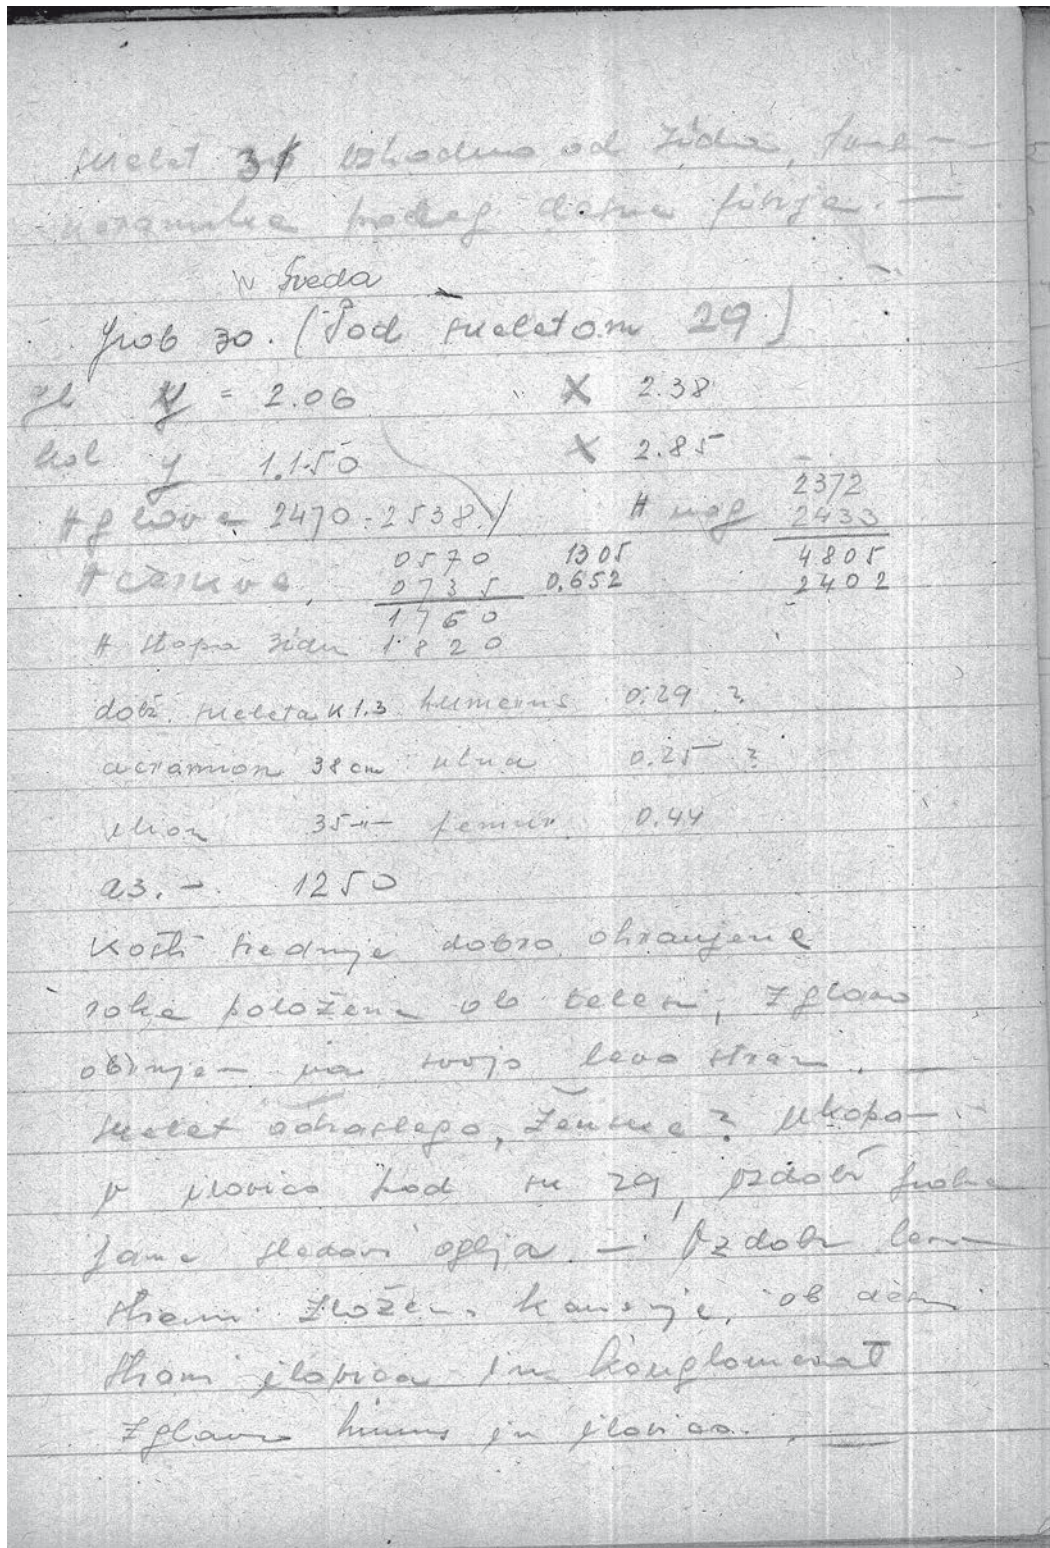 skelet 31 vzhodno od zidu,
podleg desne
Sreda
Grob 30. (Pod skeletom 29)
gl y = 2.06 X 2.38
kol y 1.150 X 2.85
2372
# glave 2470-2538 # nog 2433
0570 1305 4805
# 0735 0.652 2402
1760
# stopa zidu 1820
dolž. skeleta K 1.3 humerus 0.29 ?
acromion 38 cm ulna 0.25 ?
35 femur 0.44
az. - 1250
Kosti srednje dobro ohranjene
roke položene ob telesu, z glavo
obrnjen na svojo levo stran. —
skelet odraslega, ženske ? ukopa-
v ilovico pod sk 29, vzdolž grobne
jame sledovi oglja. — Vzdolž leve
strani zložene kamenje, ob desni
strani ilovica in konglomerat
z glavo humus in ilovica. —